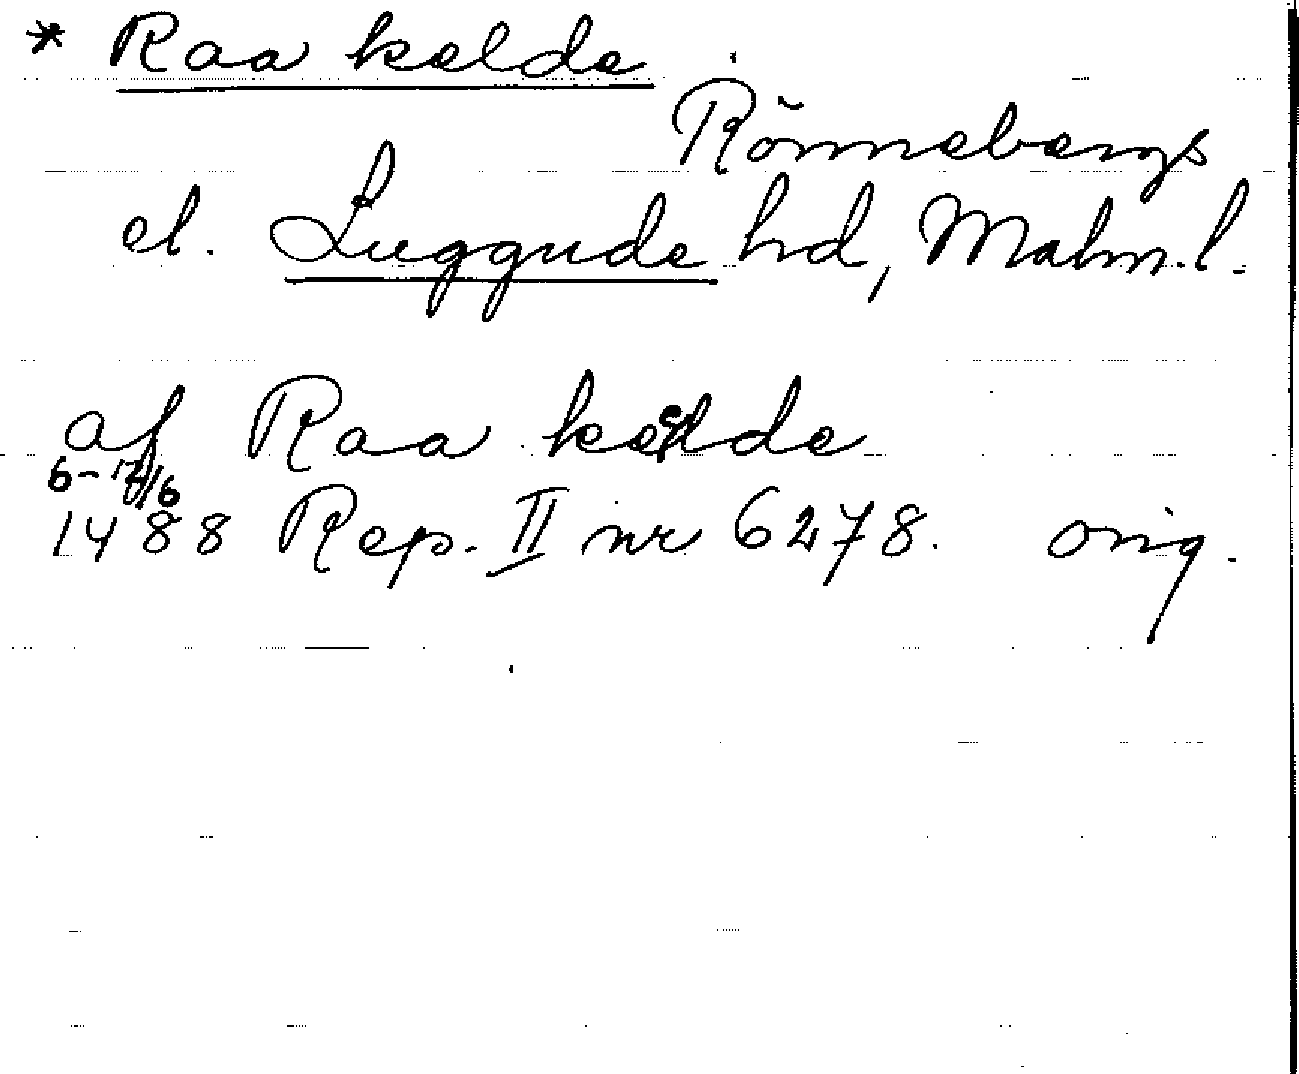 * Raa kelde
Rönnebergs
el. Luggude hd, Malm. l.
af Raa kelde
1488 Rep. II nr 6278. orig.